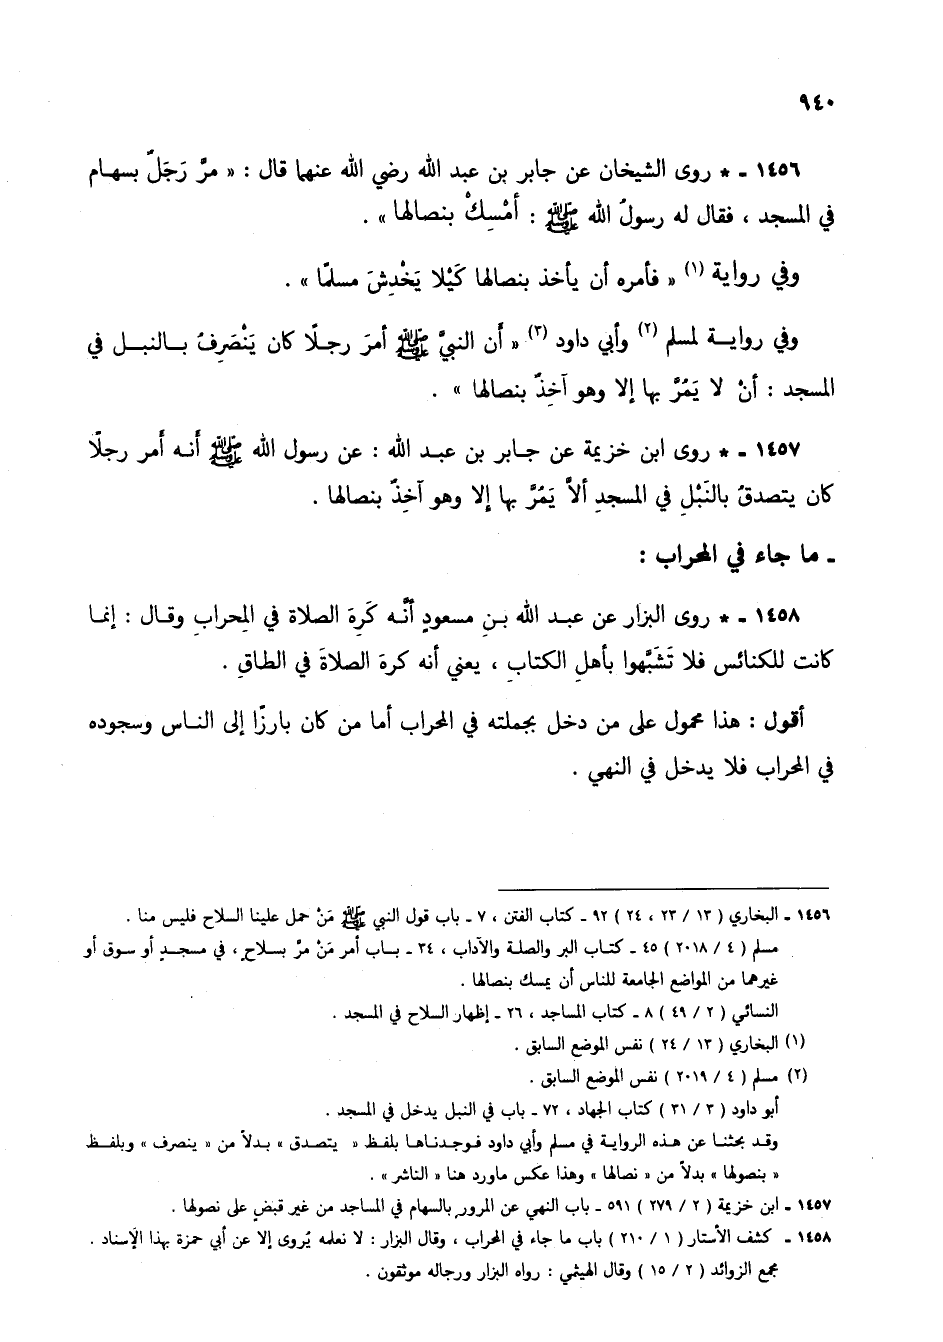 ٩٤٠
١٤٥٦ - * روى الشيخان عن جابر بن عبد الله رضي الله عنهما قال : « مرَّ رَجَلٌ بسهام
في المسجد ، فقال له رسولُ الله ﷺ : أمْسِكْ بنصالها » .
وفي رواية (١) « فأمره أن يأخذ بنصالها كَيْلا يَخْدِشَ مسلمًا » .
وفي روايـة لمسلم (٢) وأبي داود (٣) « أَن النبيَّ ﷺ أمرَ رجـلًا كان يَنْصَرِفُ بـالنبـل في
المسجد : أنْ لا يَمُرَّ بها إلا وهو آخِذٌ بنصالها » .
١٤٥٧ - * روى ابن خزيمة عن جـابر بن عبـد الله : عن رسول الله ﷺ أَنـه أَمر رجلًا
كان يتصدقُ بالنَبْلِ في المسجدِ ألاَّ يَمُرَّ بها إلا وهو آخِذٌ بنصالها .
- ما جاء في المحراب :
١٤٥٨ - * روى البزار عن عبـد الله بـنِ مسعودٍ أنَّـه كَرِهَ الصلاة في المِحرابِ وقـال : إنمـا
كانت للكنائس فلا تَشَبَّهوا بأهلِ الكتابِ ، يعني أنه كرهَ الصلاةَ في الطاقِ .
أقول : هذا محمول على من دخل بجملته في المحراب أما من كان بارزًا إلى الناس وسجوده
في المحراب فلا يدخل في النهي .
١٤٥٦ - البخاري ( ١٣ / ٢٣ ، ٢٤ ) ٩٢ - كتاب الفتن ، ٧ - باب قول النبي ﷺ مَنْ حمل علينا السلاح فليس منا .
مسلم ( ٤ / ٢٠١٨ ) ٤٥ - كتـاب البر والصلـة والآداب ، ٣٤ - بـاب أمر مَنْ مرَّ بسلاحٍ ، في مسجـدٍ أو سوق أو
غيرهما من المواضع الجامعة للناس أن يمسك بنصالها .
النسائي ( ٢ / ٤٩ ) ٨ - كتاب المساجد ، ٢٦ - إظهار السلاح في المسجد .
(١) البخاري ( ١٣ / ٢٤ ) نفس الموضع السابق .
(٢) مسلم ( ٤ / ٢٠١٩ ) نفس الموضع السابق .
أبو داود ( ٣ / ٣١ ) كتاب الجهاد ، ٧٢ - باب في النبل يدخل في المسجد .
وقـد بحثنـا عن هـذه الروايـة في مسلم وأبي داود فـوجـدنـاهـا بلفـظ « يتصدق » بـدلاً من « ينصرف » وبلفـظ
« بنصولها » بدلاً من « نصالها » وهذا عكس ماورد هنا « الناشر » .
١٤٥٧ - ابن خزيمة ( ٢ / ٢٧٩ ) ٥٩١ - باب النهي عن المرور بالسهام في المساجد من غير قبضٍ على نصولها .
١٤٥٨ - كشف الأستار ( ١ / ٢١٠ ) باب ما جاء في المحراب ، وقال البزار : لا نعلمه يُروى إلا عن أبي حمزة بهذا الإسناد .
مجمع الزوائد ( ٢ / ١٥ ) وقال الهيثمي : رواه البزار ورجاله موثقون .